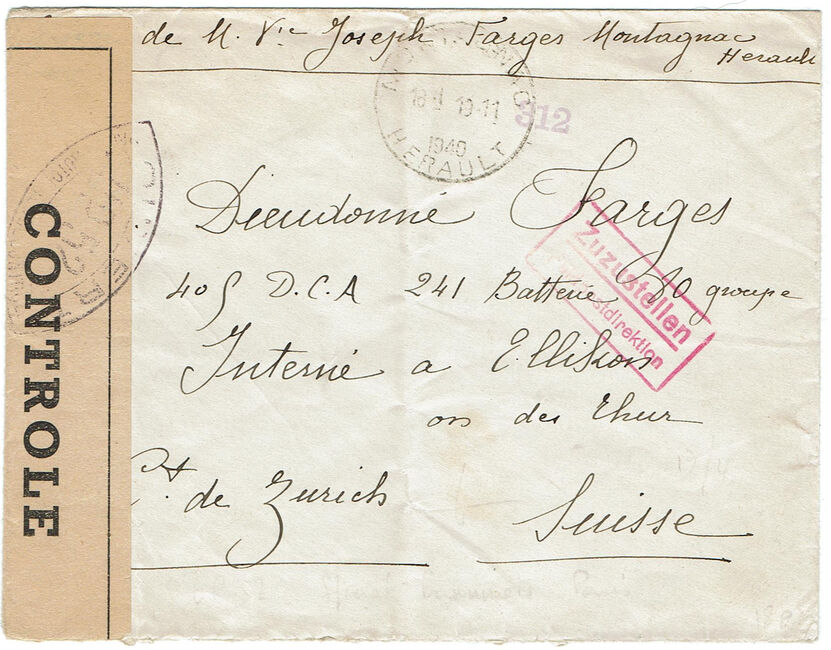 de M. Vve Joseph Farges Montagnac
Herault
18 19-11
1940
HERAULT
312
Dieudonné Farges
Zuzustellen
stdirektion
405 D.C.A 241 Batterie 80 groupe
Interné a Ellikon
on der Thur
Ct. de Zurich
Suisse
CONTROLE